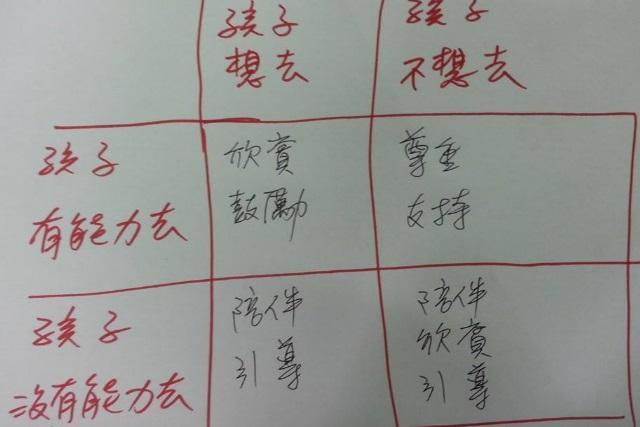 孩子
想去
孩子
不想去
孩子
有能力去
欣賞
鼓勵
尊重
支持
孩子
沒有能力去
陪伴
引導
陪伴
欣賞
引導